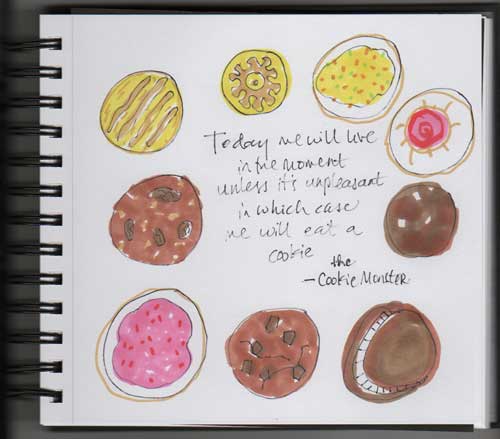 Today we will live
in the moment
unless it's unpleasant
in which case
we will eat a
cookie
the
-Cookie Monster